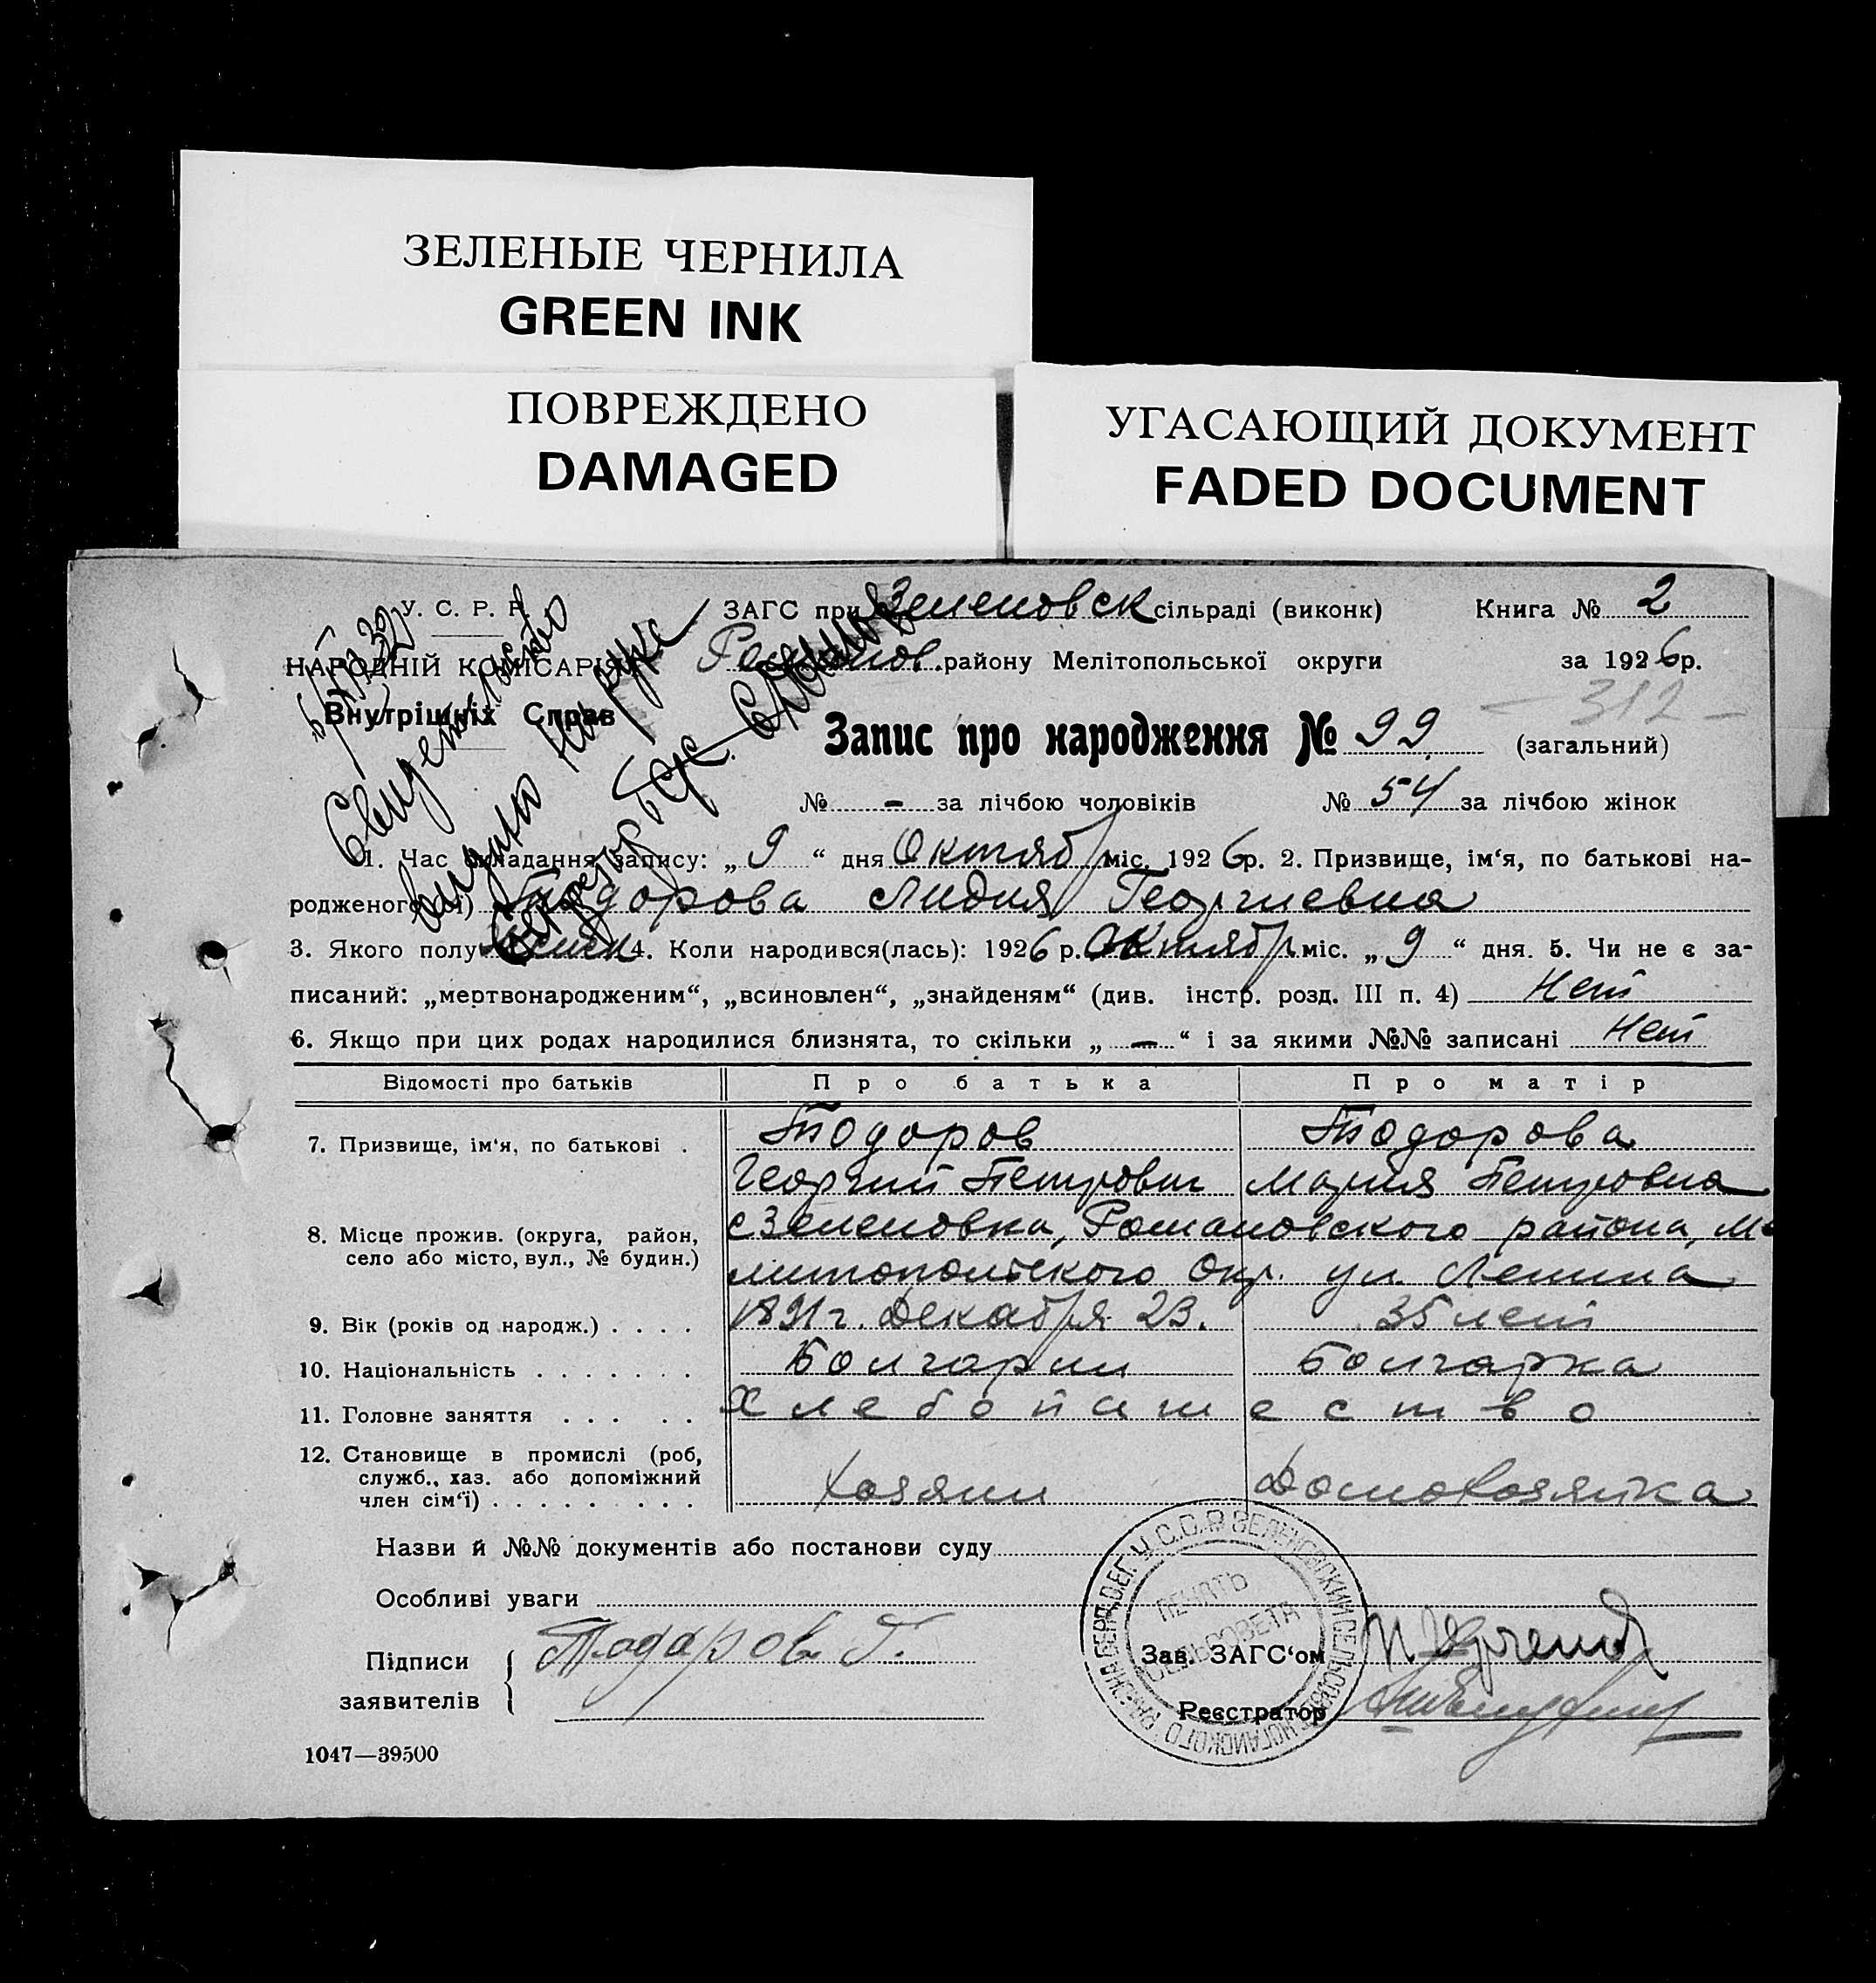 ЗЕЛЕНЫЕ ЧЕРНИЛА
GREEN INK
ПОВРЕЖДЕНО
DAMAGED
УГАСАЮЩИЙ ДОКУМЕНТ
FADED DOCUMENT
У. С. Р. Р.
НАРОДНІЙ КОМІСАРІЯТ
Внутрішніх Справ
Свидетельство
выдано на руки
ЗАГС при Зеленовск сільраді (виконк) Книга № 2
Романов. району Мелітопольської округи за 1926 р.
- 312 -
Запис про народження № 99 (загальний)
№ - за лічбою чоловіків № 54 за лічбою жінок
1. Час складання запису: „ 9 “ дня Октябр міс. 1926 р. 2. Призвище, ім‘я, по батькові на-
родженого(ої) Тодорова Лидия Георгиевна
3. Якого полу женск 4. Коли народився(лась): 1926 р. Октябр міс. „ 9 “ дня. 5. Чи не є за-
писаний: „мертвонародженим“, „всиновлен“, „знайденям“ (див. інстр. розд. III п. 4) Нет
6. Якщо при цих родах народилися близнята, то скільки „ — “ і за якими №№ записані Нет
Відомості про батьків Про батька Про матір
7. Призвище, ім‘я, по батькові . Тодоров Тодорова
Георгий Петрович Мария Петровна
8. Місце прожив. (округа, район, село або місто, вул., № будин.) с Зеленовка, Романовского района, Ме
литопольского Окр. ул. Ленина
9. Вік (років од народж.) . . . . 1891 г. Декабря 23. 35 лет
10. Національність . . . . . . . Болгарин Болгарка
11. Головне заняття . . . . . Хлебопашество
12. Становище в промислі (роб, служб., хаз. або допоміжний член сім‘ї) . . . . . . . . . Хозяин Домохозяйка
Назви й №№ документів або постанови суду
Особливі уваги
Підписи заявителів Тодоров Г.
Зав. ЗАГС‘ом
Реєстратор
ПЕЧАТЬ
СЕЛЬСОВЕТА
1047—39500